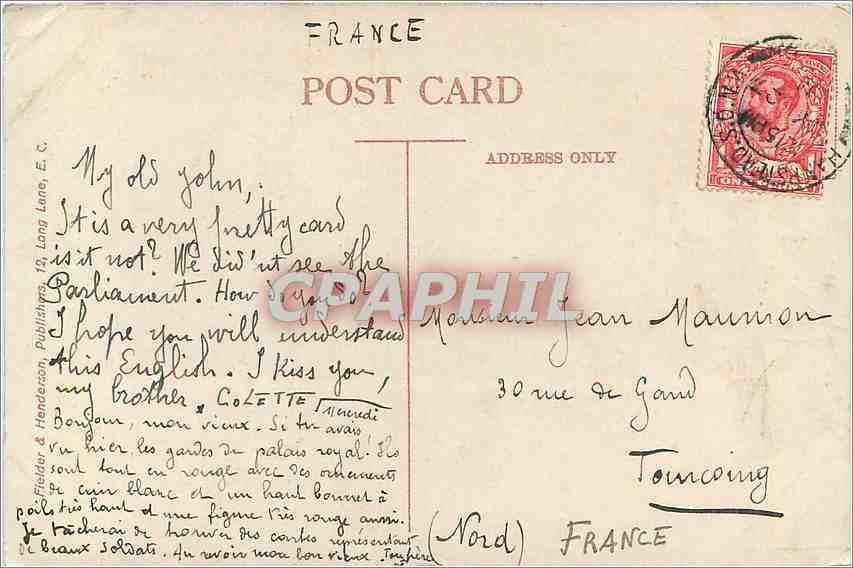 FRANCE
POST CARD
ADDRESS ONLY
Fielder & Henderson, Publishers, 12, Long Lane, E. C.
My old John,
It is a very pretty card
is it not? We did'nt see the
Parliament. How do you do?
I hope you will understand
this English. I kiss you,
my brother. COLETTE
Mercredi
Bonjour, mon vieux. Si tu avais
vu hier, les gardes du palais royal! Ils
sont tout en rouge avec des ornements
de cuir blanc et un haut bonnet à
poils très haut et une figure très rouge aussi.
Je tâcherai de trouver des cartes représentant
de beaux soldats. Au revoir mon bon vieux. Ton frère
Monsieur Jean
30 rue de Gand
Tourcoing
(Nord) FRANCE
CPARPHIL
HAMPSTEAD S.O. N.W.